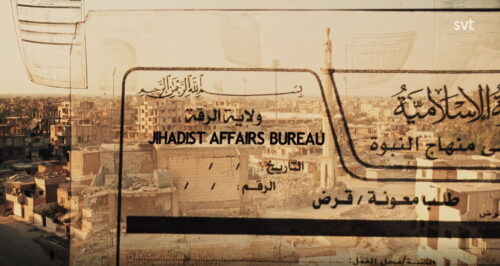 svt
بسم الله الرحمن الرحيم
ولاية الرقة
JIHADIST AFFAIRS BUREAU
التاريخ: / /
الرقم: / /
الإسلامية
منهاج النبوة
طلب معونة / قرض